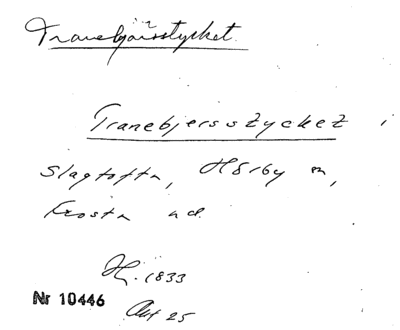 Tranebjärsstycket.
Tranebjersstycket i
Slagtofta, Hörby sn,
Frosta hd.
H. 1833
Akt 25
Nr 10446